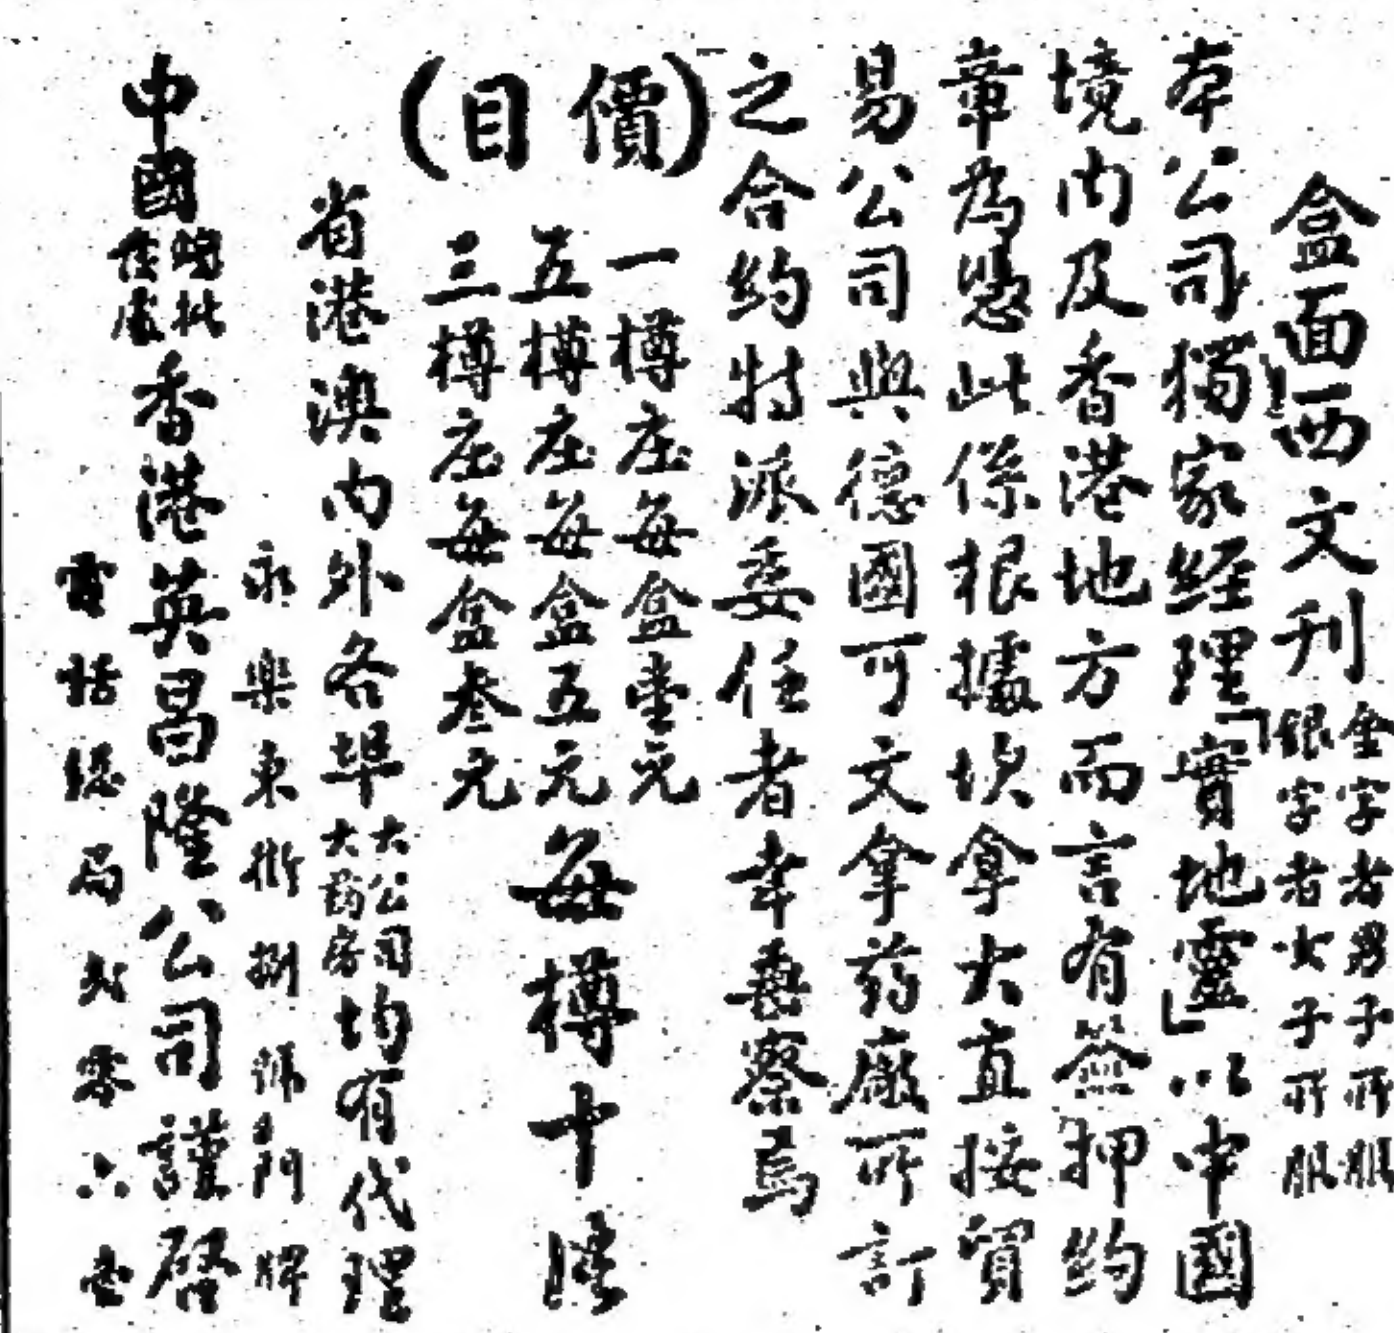 盒面西文刊
金字者男子所服
銀字者女子所服
本公司獨家經理「寶地靈」以中國
境內及香港地方而言有簽押約
章為憑此係根據坎拿大直接貿
易公司與德國可文拿药廠所訂
之合約特派委任者幸垂察焉
(價目)
一樽庄每盒壹元
五樽庄每盒五元
三樽庄每盒叁元
每樽十
省港澳內外各埠
大公司
大药房
均有代理
永樂東街捌號門牌
中國
總批
發處
香港英昌隆公司謹啓
電話總局式零六壹